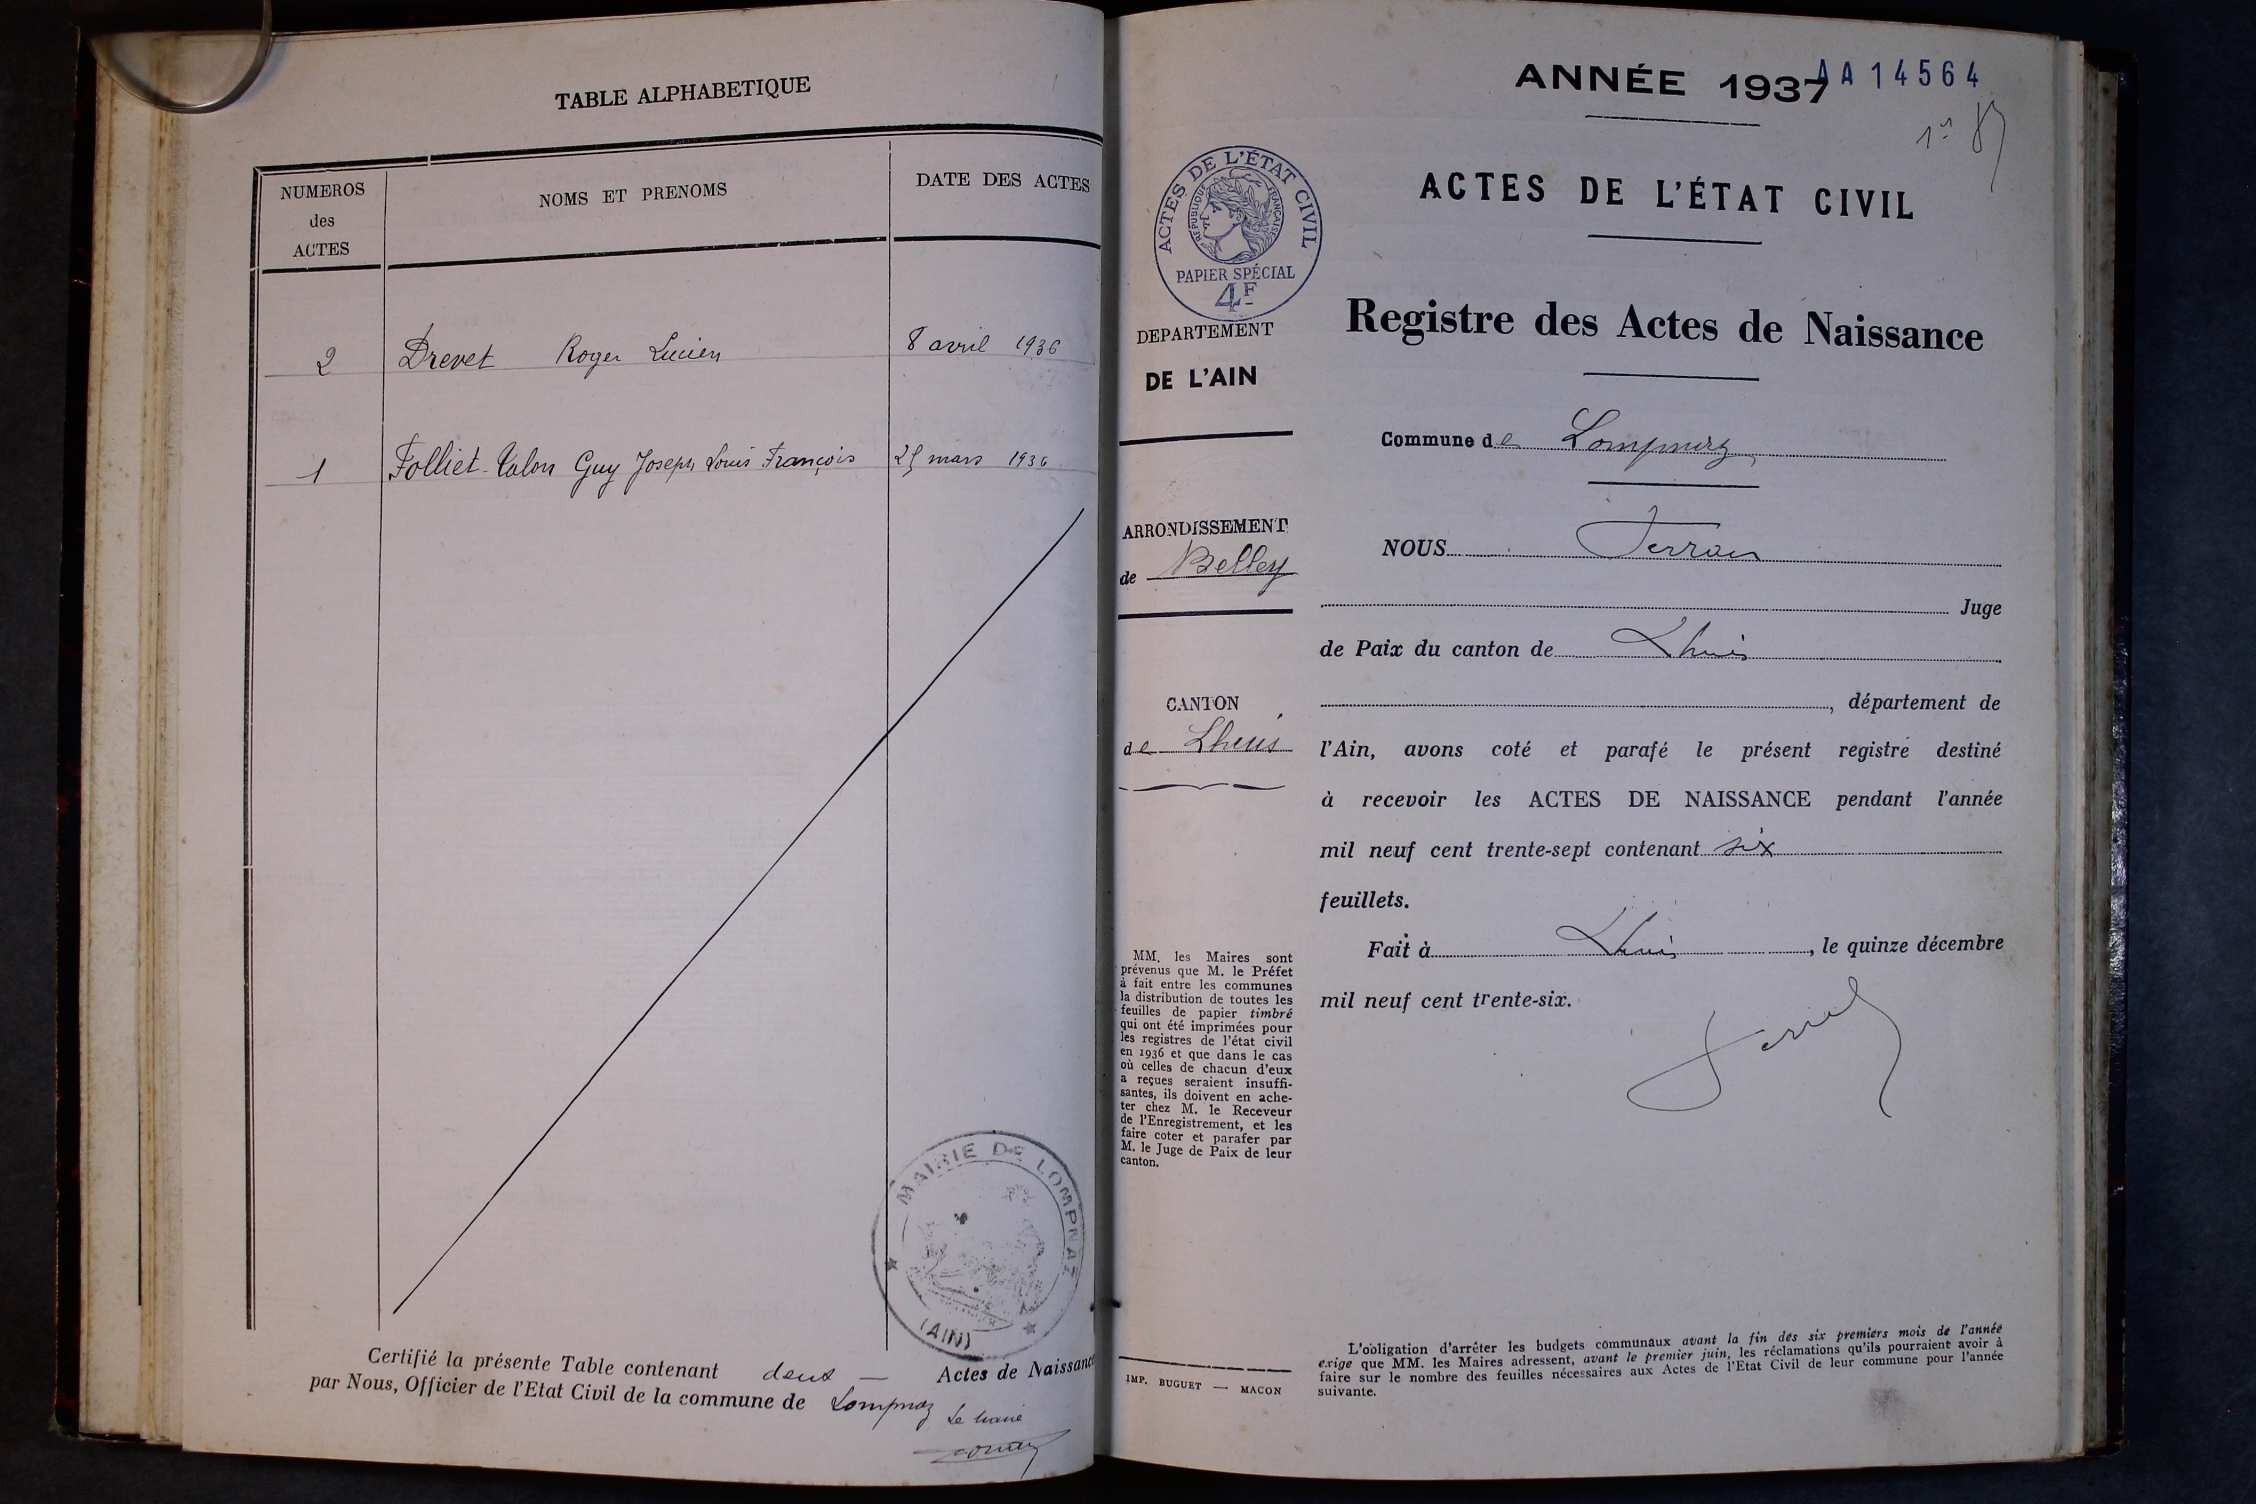 TABLE ALPHABETIQUE
NUMEROS
des
ACTES
NOMS ET PRENOMS
DATE DES ACTES
2 Drevet Roger Lucien 8 avril 1936
1 Folliet-Valon Guy Joseph Louis François 25 mars 1936
MAIRIE DE LOMPNAS
(AIN)
Certifié la présente Table contenant deux — Actes de Naissance
par Nous, Officier de l'Etat Civil de la commune de Lompnaz Le maire
ANNÉE 1937
AA14564
ACTES DE L'ÉTAT CIVIL
RÉPUBLIQUE FRANÇAISE
PAPIER SPÉCIAL
4F
DEPARTEMENT
DE L'AIN
ARRONDISSEMENT
de Belley
CANTON
de Lhuis
MM. les Maires sont
prévenus que M. le Préfet
à fait entre les communes
la distribution de toutes les
feuilles de papier timbré
qui ont été imprimées pour
les registres de l'état civil
en 1936 et que dans le cas
où celles de chacun d'eux
a reçues seraient insuffi-
santes, ils doivent en ache-
ter chez M. le Receveur
de l'Enregistrement, et les
faire coter et parafer par
M. le Juge de Paix de leur
canton.
IMP. BUGUET — MACON
ACTES DE L'ÉTAT CIVIL
Registre des Actes de Naissance
Commune de Lompnaz
NOUS
Juge
de Paix du canton de Lhuis
, département de
l'Ain, avons coté et parafé le présent registre destiné
à recevoir les ACTES DE NAISSANCE pendant l'année
mil neuf cent trente-sept contenant six
feuillets.
Fait à Lhuis, le quinze décembre
mil neuf cent trente-six.
L'obligation d'arrêter les budgets communaux avant la fin des six premiers mois de l'année
exige que MM. les Maires adressent, avant le premier juin, les réclamations qu'ils pourraient avoir à
faire sur le nombre des feuilles nécessaires aux Actes de l'Etat Civil de leur commune pour l'année
suivante.